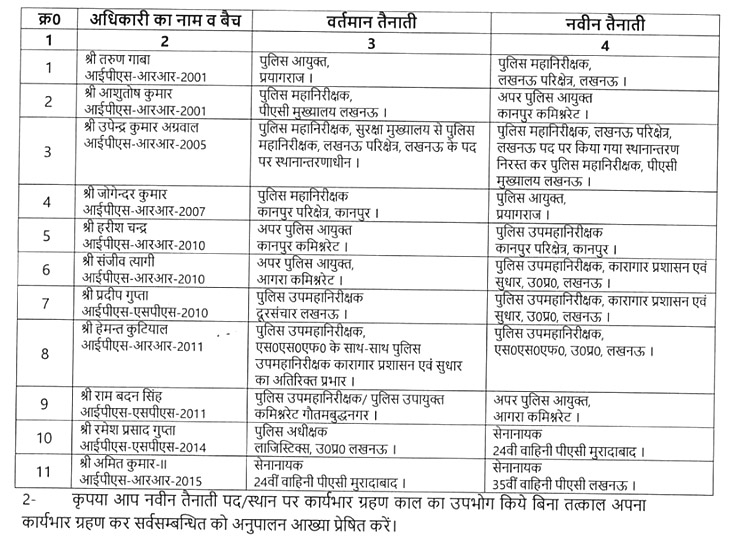 क्र0 अधिकारी का नाम व बैच वर्तमान तैनाती नवीन तैनाती
1 2 3 4
1 श्री तरुण गाबा पुलिस आयुक्त, पुलिस महानिरीक्षक,
आईपीएस-आरआर-2001 प्रयागराज । लखनऊ परिक्षेत्र, लखनऊ ।
2 श्री आशुतोष कुमार पुलिस महानिरीक्षक, अपर पुलिस आयुक्त
आईपीएस-आरआर-2001 पीएसी मुख्यालय लखनऊ । कानपुर कमिश्नरेट ।
3 श्री उपेन्द्र कुमार अग्रवाल पुलिस महानिरीक्षक, सुरक्षा मुख्यालय से पुलिस पुलिस महानिरीक्षक, लखनऊ परिक्षेत्र,
आईपीएस-आरआर-2005 महानिरीक्षक, लखनऊ परिक्षेत्र, लखनऊ के पद लखनऊ पद पर किया गया स्थानान्तरण
पर स्थानान्तरणाधीन । निरस्त कर पुलिस महानिरीक्षक, पीएसी
मुख्यालय लखनऊ ।
4 श्री जोगेन्दर कुमार पुलिस महानिरीक्षक पुलिस आयुक्त,
आईपीएस-आरआर-2007 कानपुर परिक्षेत्र, कानपुर । प्रयागराज ।
5 श्री हरीश चन्द्र अपर पुलिस आयुक्त पुलिस उपमहानिरीक्षक
आईपीएस-आरआर-2010 कानपुर कमिश्नरेट । कानपुर परिक्षेत्र, कानपुर ।
6 श्री संजीव त्यागी अपर पुलिस आयुक्त, पुलिस उपमहानिरीक्षक, कारागार प्रशासन एवं
आईपीएस-आरआर-2010 आगरा कमिश्नरेट । सुधार, उ0प्र0, लखनऊ ।
7 श्री प्रदीप गुप्ता पुलिस उपमहानिरीक्षक पुलिस उपमहानिरीक्षक, कारागार प्रशासन एवं
आईपीएस-एसपीएस-2010 दूरसंचार लखनऊ । सुधार, उ0प्र0, लखनऊ ।
8 श्री हेमन्त कुटियाल पुलिस उपमहानिरीक्षक, पुलिस उपमहानिरीक्षक,
आईपीएस-आरआर-2011 एस0एस0एफ0 के साथ-साथ पुलिस एस0एसएफ0, उ0प्र0, लखनऊ ।
उपमहानिरीक्षक कारागार प्रशासन एवं सुधार
का अतिरिक्त प्रभार ।
9 श्री राम बदन सिंह पुलिस उपमहानिरीक्षक/ पुलिस उपायुक्त अपर पुलिस आयुक्त,
आईपीएस-एसपीएस-2011 कमिश्नरेट गौतमबुद्धनगर । आगरा कमिश्नरेट ।
10 श्री रमेश प्रसाद गुप्ता पुलिस अधीक्षक सेनानायक
आईपीएस-एसपीएस-2014 लाजिस्टिक्स, उ0प्र0 लखनऊ । 24वी वाहिनी पीएसी मुरादाबाद ।
11 श्री अमित कुमार-II सेनानायक सेनानायक
आईपीएस-आरआर-2015 24वीं वाहिनी पीएसी मुरादाबाद । 35वीं वाहिनी पीएसी लखनऊ ।
2- कृपया आप नवीन तैनाती पद/स्थान पर कार्यभार ग्रहण काल का उपभोग किये बिना तत्काल अपना
कार्यभार ग्रहण कर सर्वसम्बन्धित को अनुपालन आख्या प्रेषित करें।